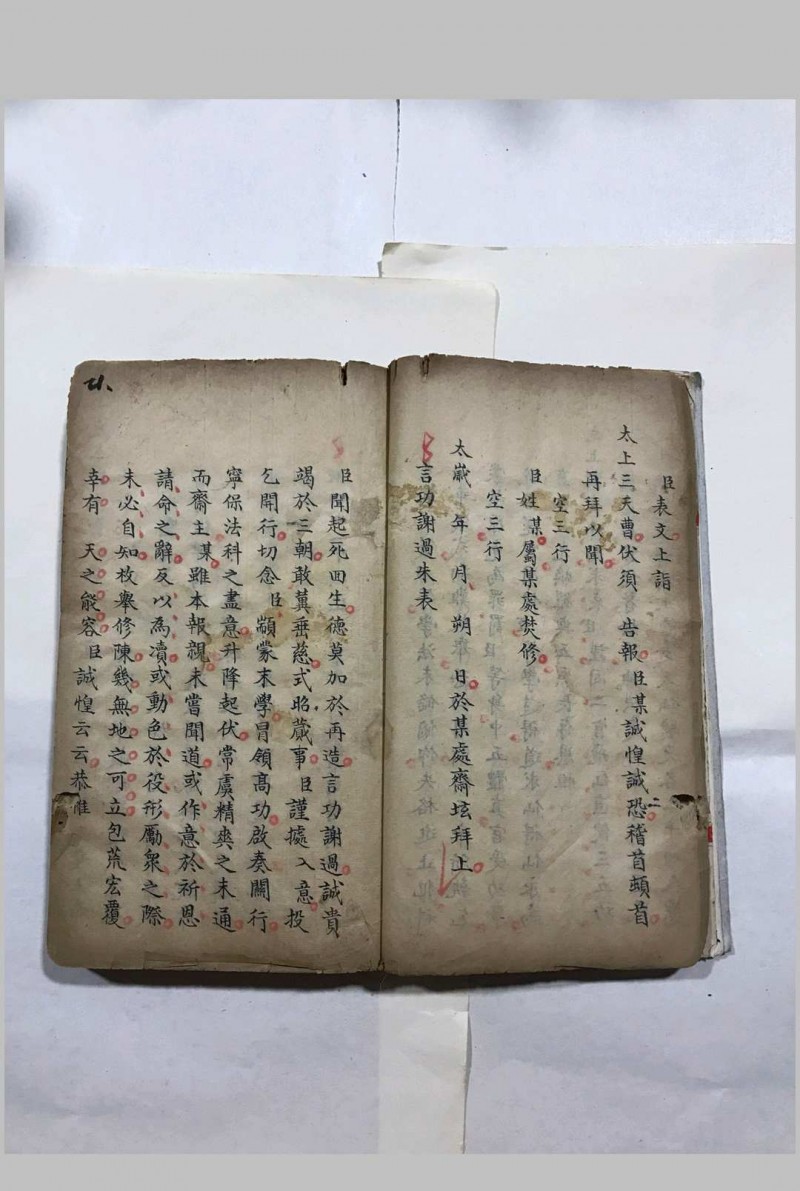 臣表文上詣
太上三天曹伏須 告報臣某誠惶誠恐稽首頓首
再拜以聞
空三行
臣姓某屬某處焚修
空三行
太歲 年 月 朔 日於某處齋坛拜上
言功謝過朱表
臣聞起死回生德莫加於再造言功謝過誠貴
竭於三朝敢冀垂慈式昭蕆事臣謹據入意投
乞開行切念臣顓蒙末學冒領高功啟奏關行
寧保法科之盡意升降起伏常虞精爽之未通
而齋主某雖本報親未嘗聞道或作意於祈恩
請命之辭反以為瀆或動色於役形勵眾之際
未必自知枚舉修陳幾無地之可立包荒宏覆
幸有 天之能容臣誠惶云云恭惟